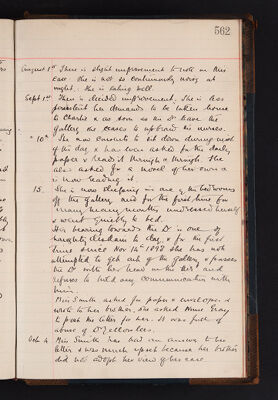 562
August 1st There is slight improvement to note in this
case. She is not so continuously noisy at
night. She is eating well.
Sept 1st There is decided improvement. She is less
persistent her demands to be taken home
to Charles & as soon as the Dr leaves the
gallery she ceases to upbraid the nurses.
" 10th She now consents to sit down during most
of the day & has even asked for the daily
paper & read it through & through. She
also asked for a novel of her own &
is now reading it.
15. She is now sleeping in one of the bedrooms
off the Gallery and for the first time for
many many months undressed herself
& went quietly to bed.
Her bearing towards the Dr is one of
haughty disdain to day, & for the first
time since Nov 1898 she has not
attempted to get out of the gallery & passes
the Dr with her head in the air and
refuses to hold any communication with
him.
Miss Smith asked for paper & envelopes &
wrote to her brother, she asked Nurse Gray
to post the letter for her. It was full of
abuse of Dr
Oct. 4 Miss Smith has had an answer to her
letter & was much upset because her brother
did not adopt her view of her case.